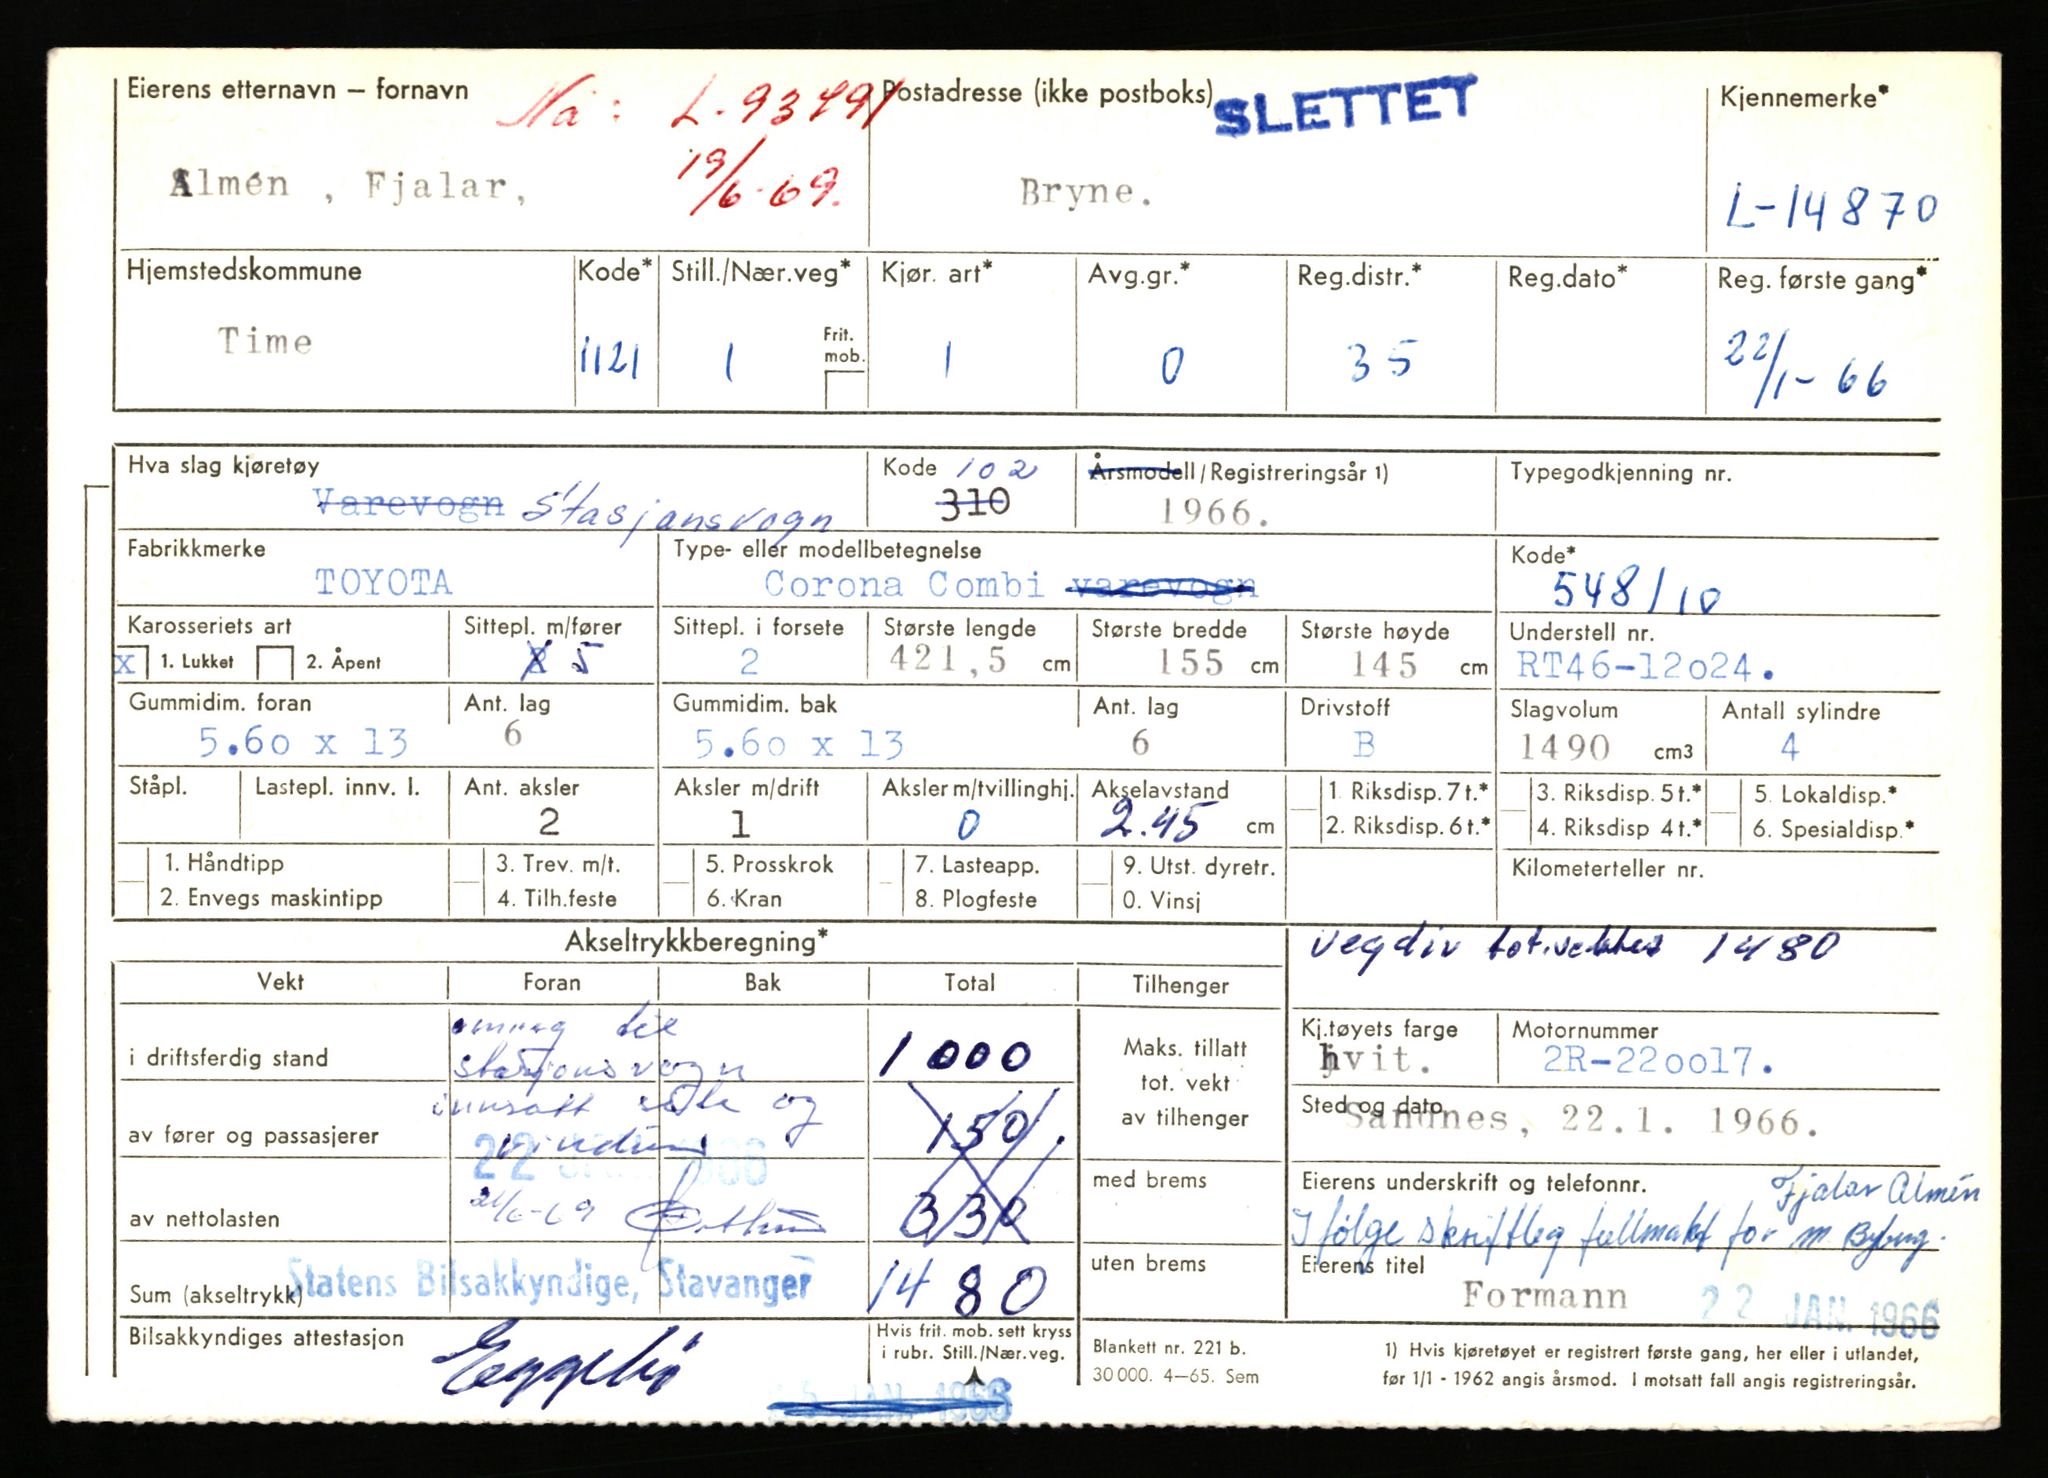 Eierens etternavn – fornavn
Nå: L-93791
Postadresse (ikke postboks)
SLETTET
Kjennemerke*
Almén , Fjalar,
19/6-69.
Bryne.
L-14870
Hjemstedskommune
Kode*
Still./Nær.veg*
Kjør. art*
Avg.gr.*
Reg.distr.*
Reg.dato*
Reg. første gang*
Time
1121
1
Frit. mob.
1
0
35
22/1-66
Hva slag kjøretøy
Kode 102
Årsmodell/Registreringsår 1)
Typegodkjenning nr.
Varevogn Stasjonsvogn
310
1966.
Fabrikkmerke
Type- eller modellbetegnelse
Kode*
TOYOTA
Corona Combi varevogn
548/10
Karosseriets art
Sittepl. m/fører
Sittepl. i forsete
Største lengde
Største bredde
Største høyde
Understell nr.
x 1. Lukket 2. Åpent
5
2
421,5 cm
155 cm
145 cm
RT46-12o24.
Gummidim. foran
Ant. lag
Gummidim. bak
Ant. lag
Drivstoff
Slagvolum
Antall sylindre
5.6o x 13
6
5.6o x 13
6
B
1490 cm3
4
Ståpl.
Lastepl. innv. l.
Ant. aksler
Aksler m/drift
Aksler m/tvillinghj.
Akselavstand
1. Riksdisp. 7 t.*
3. Riksdisp. 5 t.*
5. Lokaldisp.*
2
1
0
2.45 cm
2. Riksdisp. 6 t.*
4. Riksdisp 4 t.*
6. Spesialdisp.*
1. Håndtipp
3. Trev. m/t.
5. Prosskrok
7. Lasteapp.
9. Utst. dyretr.
Kilometerteller nr.
2. Envegs maskintipp
4. Tilh.feste
6. Kran
8. Plogfeste
0. Vinsj
Akseltrykkberegning*
vegdir tot.vekt 1480
Vekt
Foran
Bak
Total
Tilhenger
omreg til
Kj.tøyets farge
Motornummer
i driftsferdig stand
stasjonsvogn
1000
Maks. tillatt
hvit.
2R-22oo17.
innsatt sete og
tot. vekt
Sted og dato
av fører og passasjerer
vinduer
150
av tilhenger
Sandnes, 22.1. 1966.
22 JAN 1966
med brems
Eierens underskrift og telefonnr.
Fjalar Almén
av nettolasten
24/6-69
330
Ifølge skriftleg fullmakt for M. Byberg.
Statens Bilsakkyndige, Stavanger
uten brems
Eierens titel
Sum (akseltrykk)
1480
Formann
22 JAN. 1966
Bilsakkyndiges attestasjon
Hvis frit. mob. sett kryss
i rubr. Still./Nær.veg.
Blankett nr. 221 b.
30 000. 4–65. Sem
1) Hvis kjøretøyet er registrert første gang, her eller i utlandet,
før 1/1 - 1962 angis årsmod. I motsatt fall angis registreringsår.
JAN. 1966